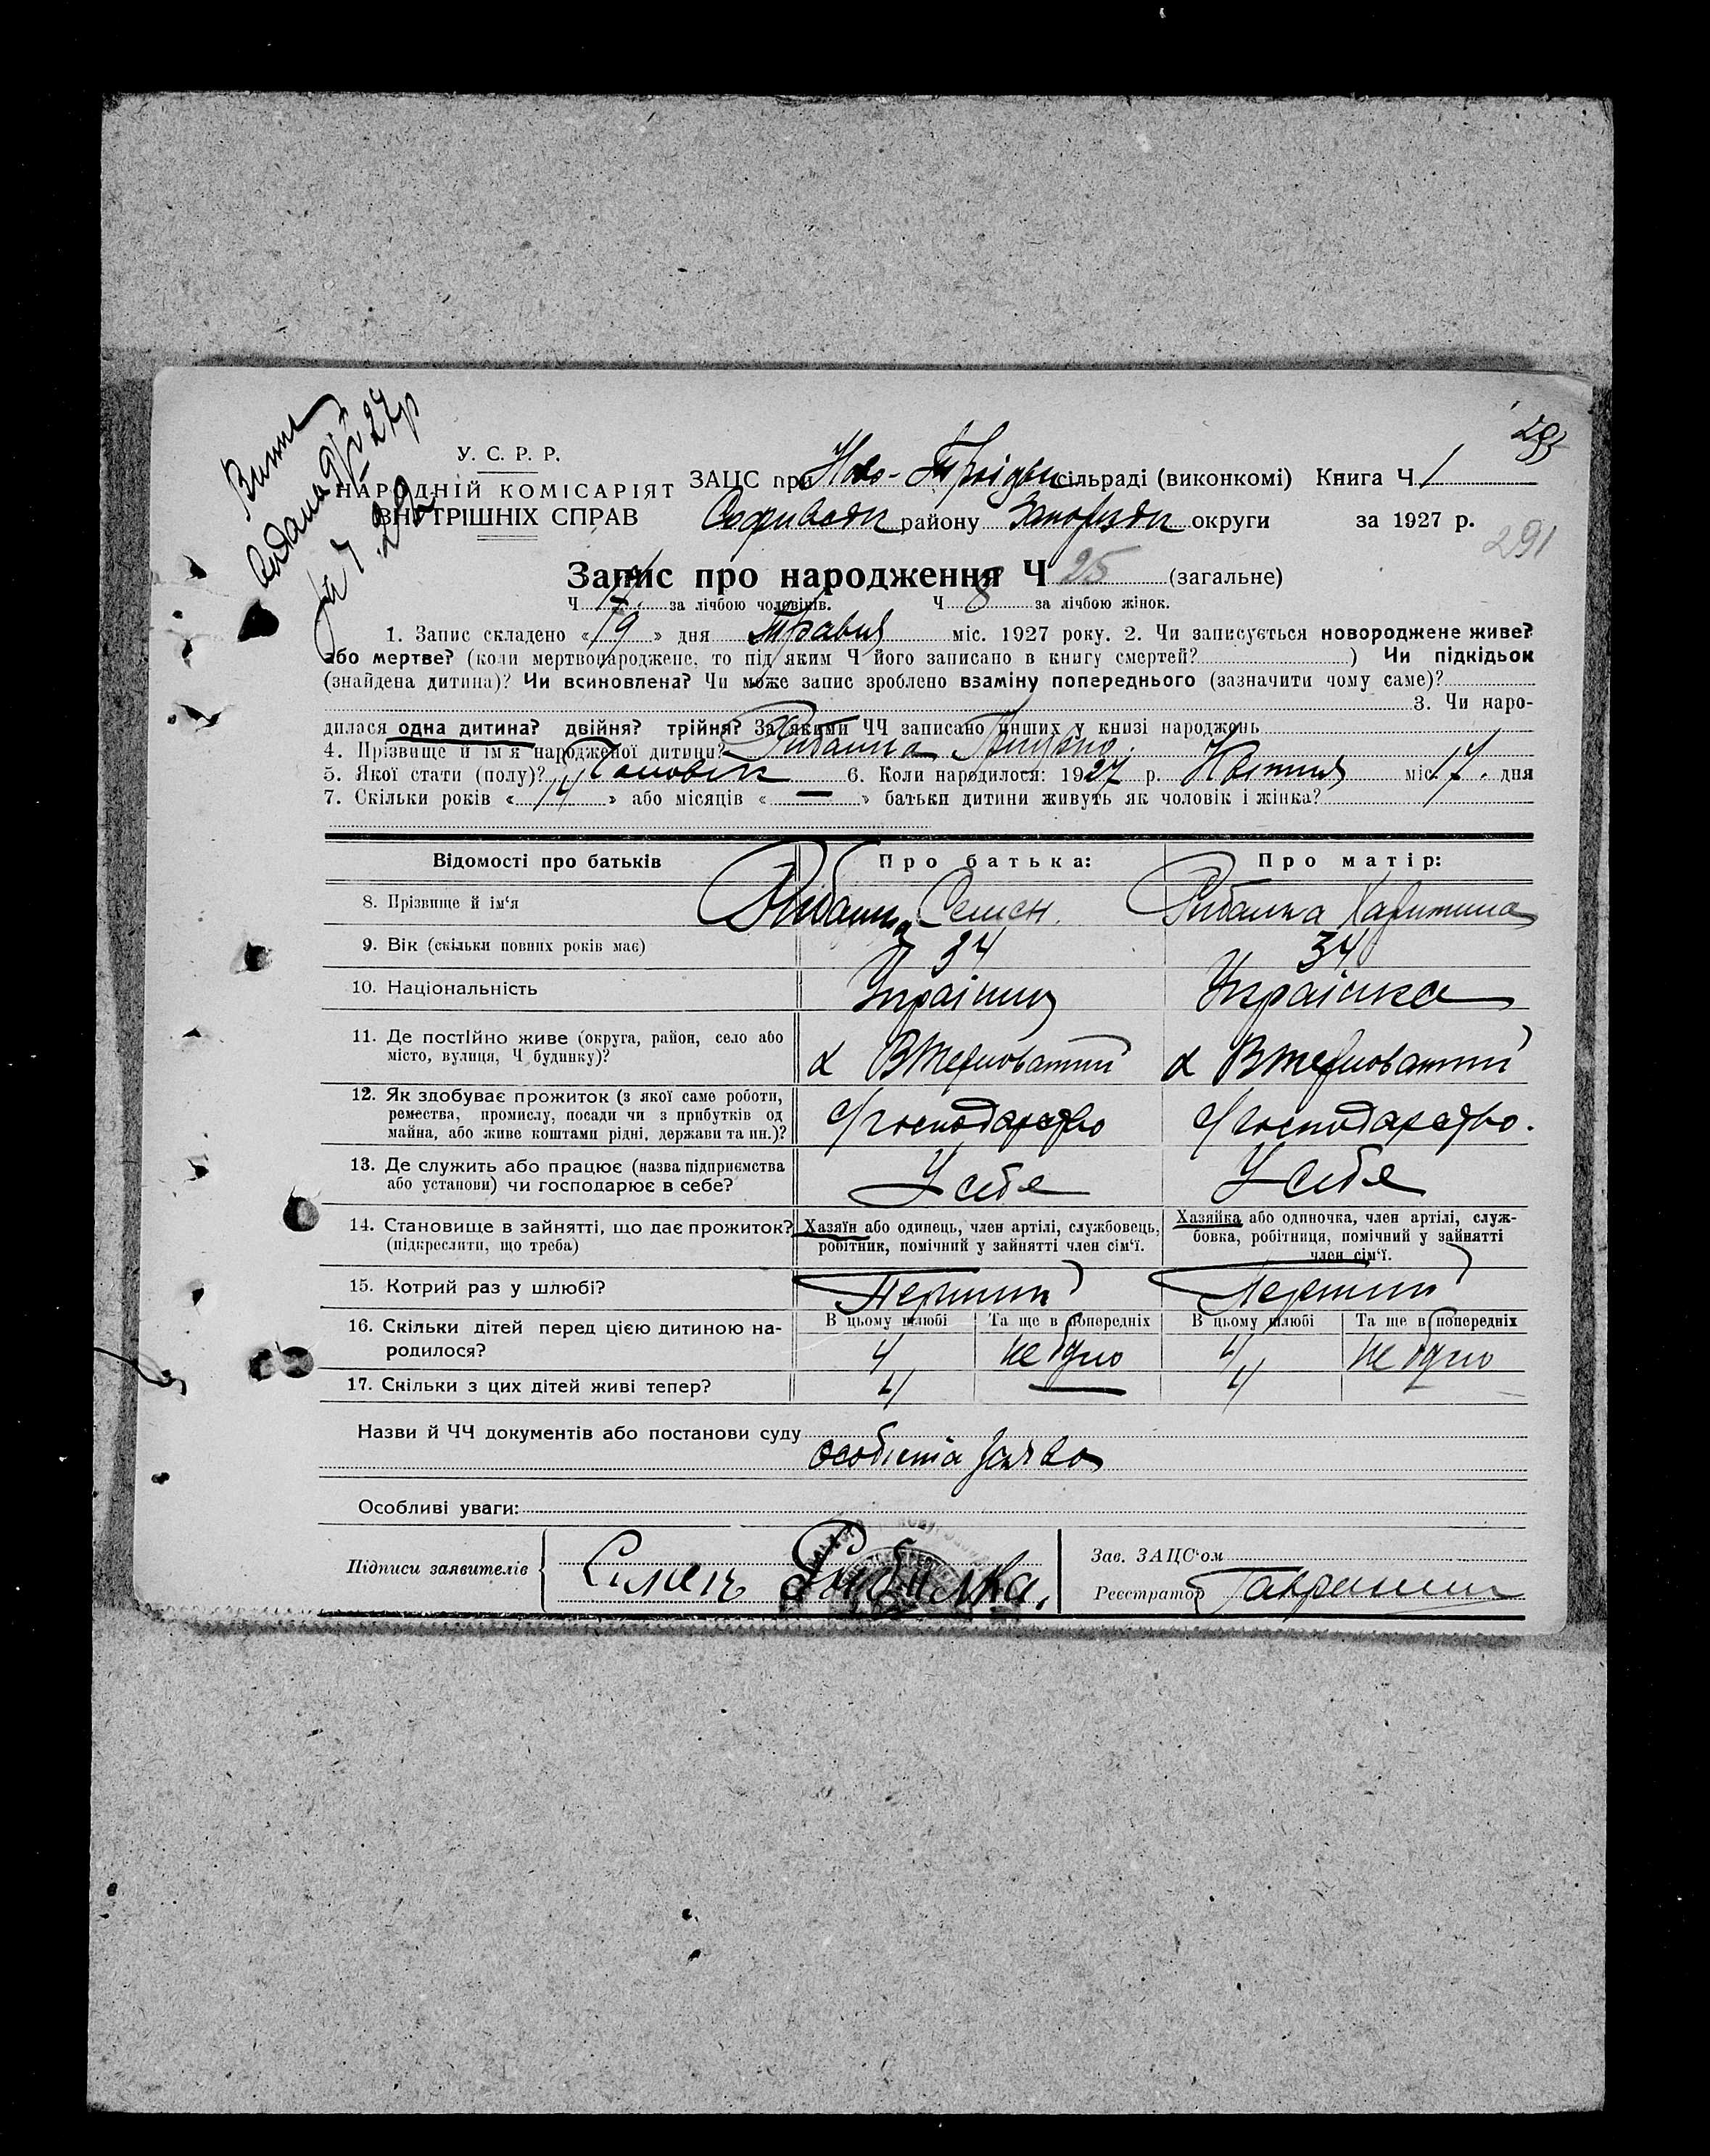 293
291
У. С. Р. Р.
НАРОДНІЙ КОМІСАРІЯТ
ВНУТРІШНІХ СПРАВ
ЗАЦС при Ново- сільраді (виконкомі) Книга Ч 1
району округи за 1927 р.
Запис про народження Ч 25 (загальне)
Ч 17 за лічбою чоловіків. Ч 8 за лічбою жінок.
1. Запис складено «19» дня Травня міс. 1927 року. 2. Чи записується новороджене живе?
або мертве? (коли мертвонароджене, то під яким Ч його записано в книгу смертей?) Чи підкідьок
(знайдена дитина)? Чи всиновлена? Чи може запис зроблено взаміну попереднього (зазначити чому саме)?
3. Чи наро-
дилася одна дитина? двійня? трійня? За якими ЧЧ записано инших у книзі народжень
4. Прізвище й ім'я народженої дитини? Рибалка
5. Якої стати (полу)? Чоловік 6. Коли народилося: 1927 р. Квітня міс. 17. дня
7. Скільки років «14» або місяців «—» батьки дитини живуть як чоловік і жінка?
Відомості про батьків
Про батька:
Про матір:
8. Прізвище й ім'я
Рибалка Семен.
Рибалка Харитина
9. Вік (скільки повних років має)
34
34
10. Національність
Українець
Українка
11. Де постійно живе (округа, район, село або
місто, вулиця, Ч будинку)?
х ВТерноватий
х ВТерноватий
12. Як здобуває прожиток (з якої саме роботи,
ремества, промислу, посади чи з прибутків од
майна, або живе коштами рідні, держави та ин.)?
С/господарство
С/господарство.
13. Де служить або працює (назва підприємства
або установи) чи господарює в себе?
У себе
У себе
14. Становище в зайнятті, що дає прожиток?
(підкреслити, що треба)
Хазяїн або одинець, член артілі, службовець,
робітник, помічний у зайнятті член сім'ї.
Хазяйка або одиночка, член артілі, служ-
бовка, робітниця, помічний у зайнятті
член сім'ї.
15. Котрий раз у шлюбі?
Перший
Перший
16. Скільки дітей перед цією дитиною на-
родилося?
В цьому шлюбі
Та ще в попередніх
В цьому шлюбі
Та ще в попередніх
4
не було
4
не було
17. Скільки з цих дітей живі тепер?
4
—
4
Назви й ЧЧ документів або постанови суду
особиста заява
Особливі уваги:
Підписи заявителів
Семен Рибалка.
Зав. ЗАЦС'ом
Реєстратор